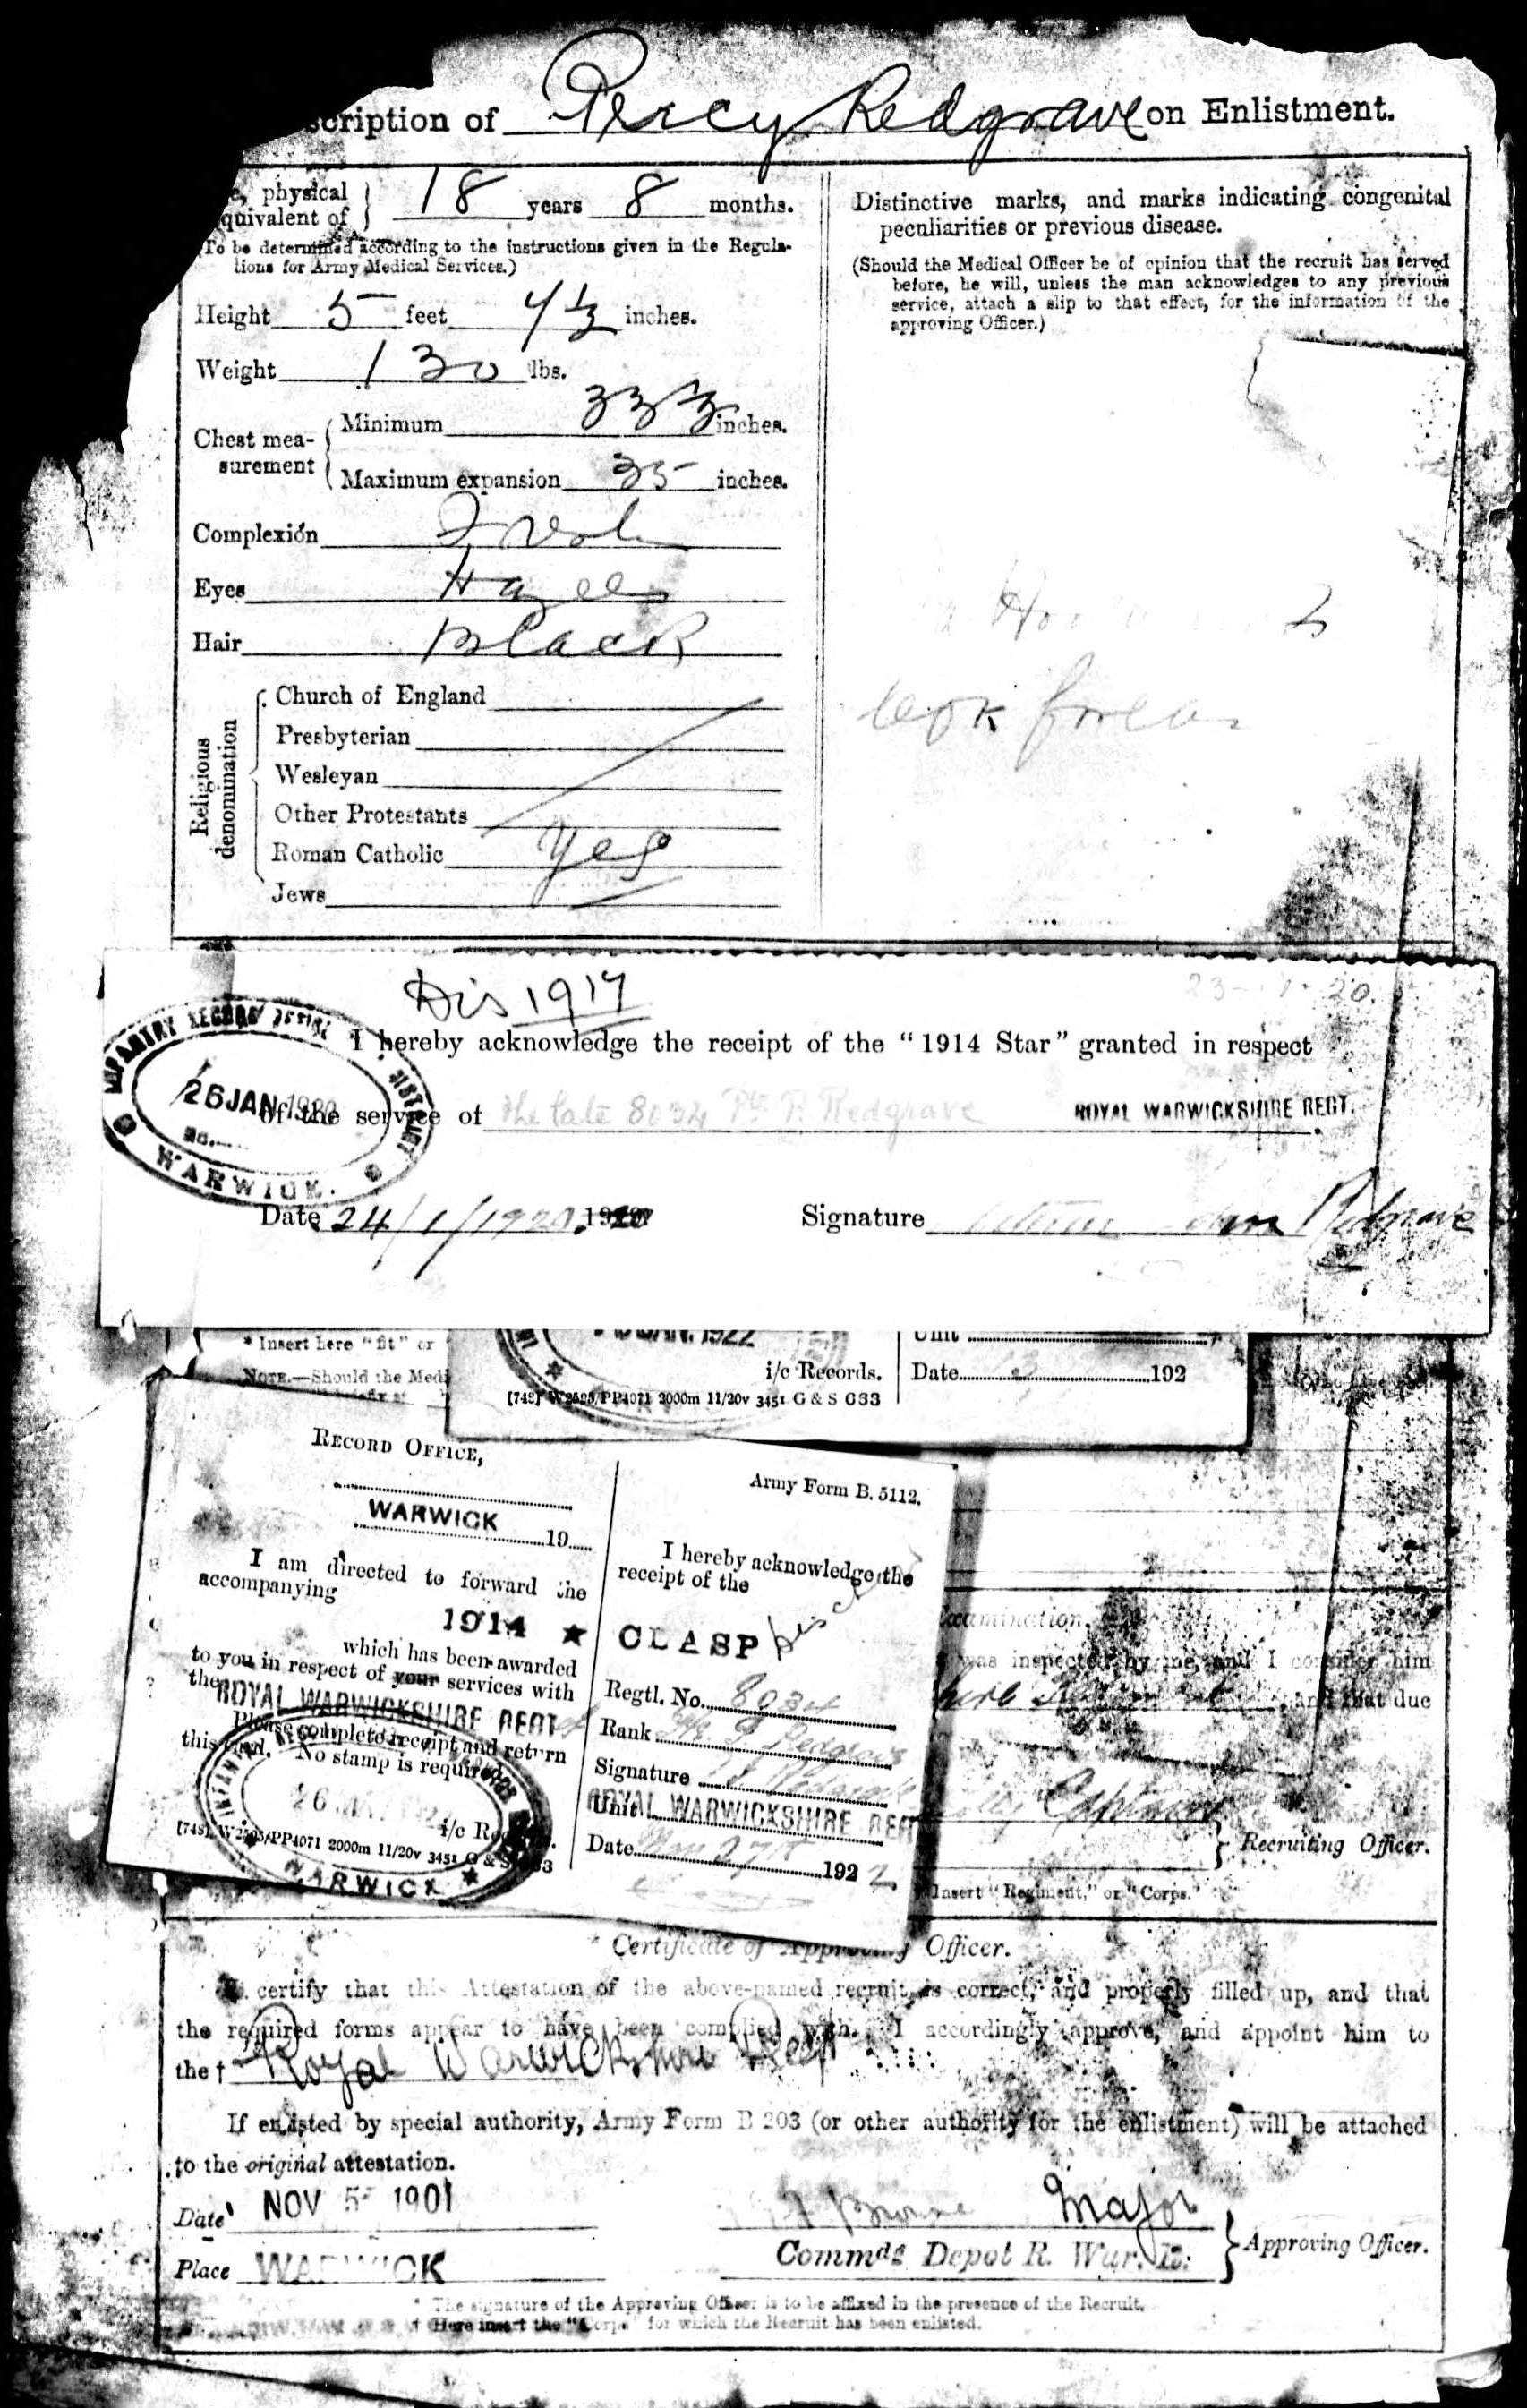 scription of Percy Redgrave on Enlistment.
e, physical
quivalent of } 18 years 8 months.
(To be determined according to the instructions given in the Regula-
tions for Army Medical Services.)
Height 5 feet 4½ inches.
Weight 130 lbs.
Chest mea-
surement { Minimum 33½ inches.
Maximum expansion 35 inches.
Complexion Fresh
Eyes Hazel
Hair Black
Religious denomination
Church of England
Presbyterian
Wesleyan
Other Protestants
Roman Catholic Yes
Jews
Distinctive marks, and marks indicating congenital
peculiarities or previous disease.
(Should the Medical Officer be of opinion that the recruit has served
before, he will, unless the man acknowledges to any previous
service, attach a slip to that effect, for the information of the
approving Officer.)
Dis 1917
20.
I hereby acknowledge the receipt of the "1914 Star" granted in respect
of the service of the late 8034 Pte P. Redgrave ROYAL WARWICKSHIRE REGT.
Date 24/1/1920 Signature Redgrave
INFANTRY RECORD OFFICE DISTRICT
26 JAN 1920
WARWICK.
* Insert here "fit" or
NOTE.—Should the Medi
JAN. 1922
i/c Records.
[748] W2595/PP4071 2000m 11/20v 3451 G & S 633
Unit
Date 13 192
RECORD OFFICE,
WARWICK
19
I am directed to forward the
accompanying
1914 ★
which has been awarded
to you in respect of your services with
the ROYAL WARWICKSHIRE REGT
Please complete receipt and return
this card. No stamp is required.
i/c Records.
[748] W2595/PP4071 2000m 11/20v 3451 G & S 633
WARWICK
Army Form B. 5112.
I hereby acknowledge the
receipt of the
CLASP
Regtl. No. 8034
Rank P Redgrave
Signature Redgrave
Unit ROYAL WARWICKSHIRE REGT
Date 27 1922
Examination.
was inspected by me, and I consider him
and that due
Captain
} Recruiting Officer.
Insert "Regiment," or "Corps."
* Certificate of Approving Officer.
I certify that this Attestation of the above-named recruit is correct, and properly filled up, and that
the required forms appear to have been complied with. I accordingly approve, and appoint him to
the † Royal Warwickshire Regt
If enlisted by special authority, Army Form B 203 (or other authority for the enlistment) will be attached
to the original attestation.
Date NOV 5 1901
Major
Place WARWICK
Commdg Depot R. War. R.
} Approving Officer.
* The signature of the Approving Officer is to be affixed in the presence of the Recruit.
† Here insert the "Corps" for which the Recruit has been enlisted.